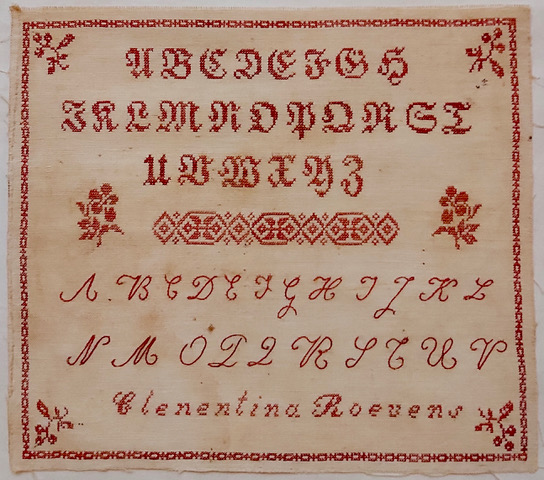 A B C D E F G H
I K L M N O P Q R S T
U V W X Y Z
A. B C D E F G H I J K L
N M O P Q R S T U V
Clenentina Roevens